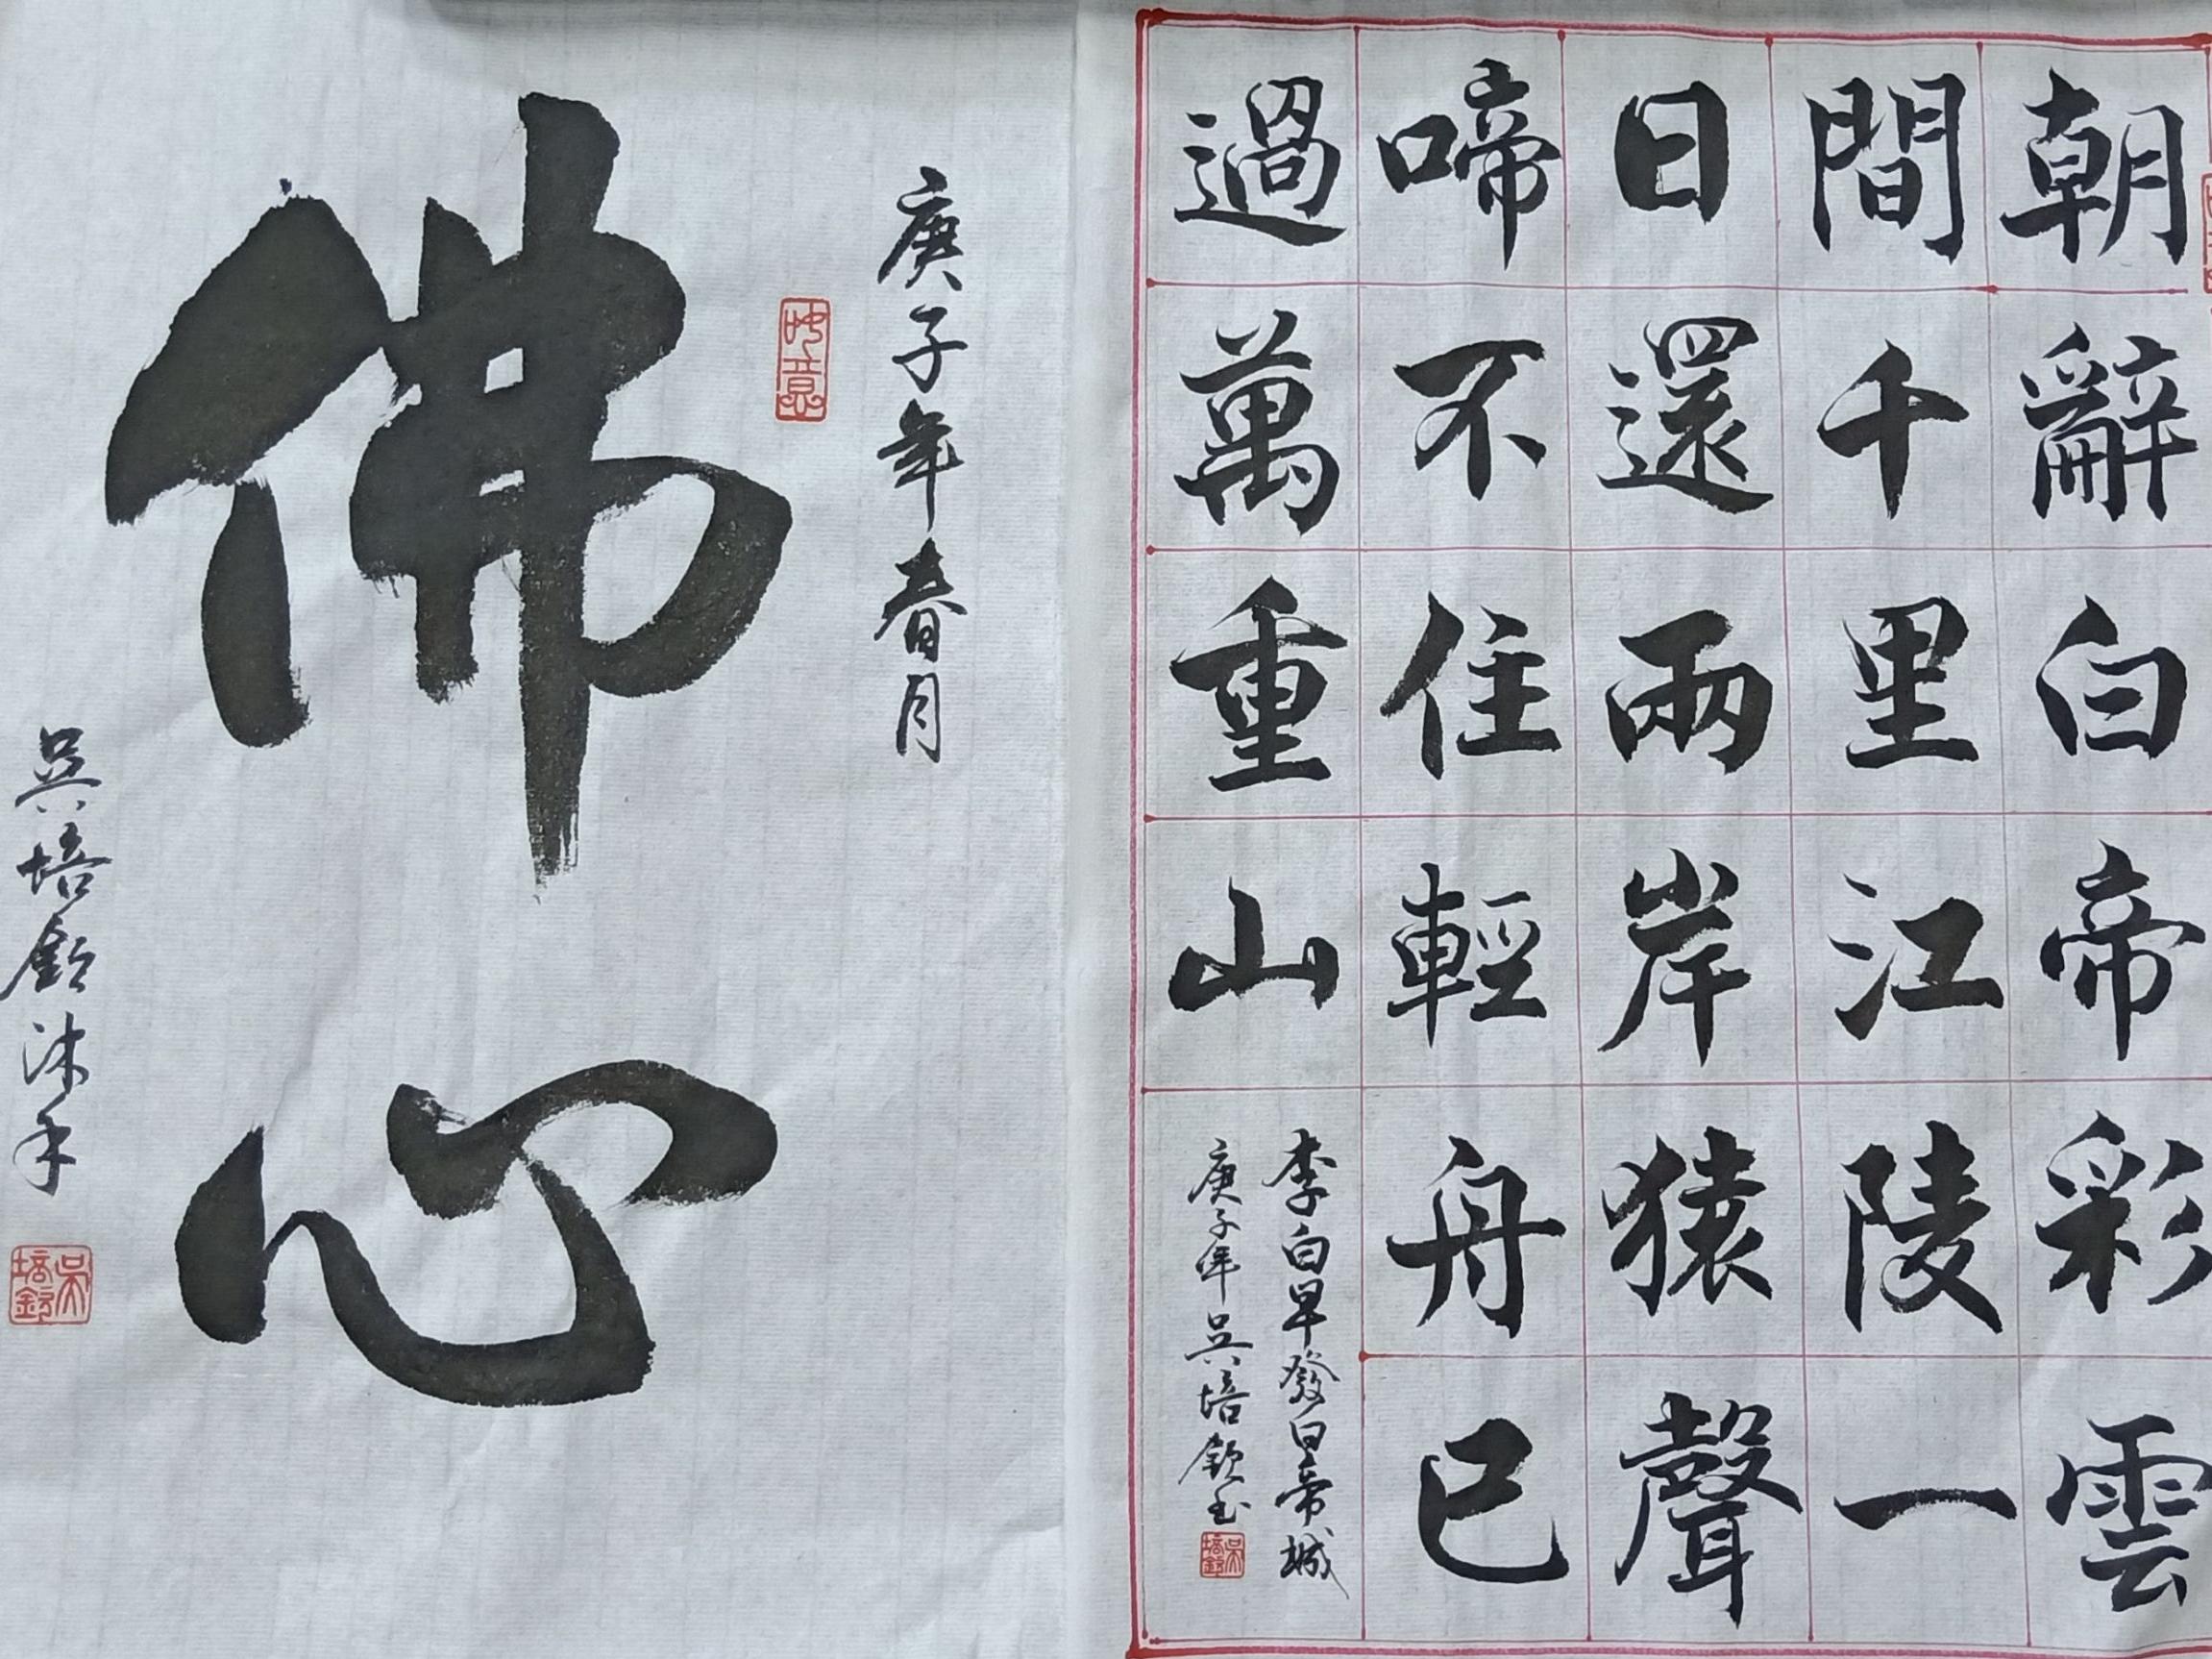 朝辭白帝彩雲
間千里江陵一
日還兩岸猿聲
啼不住輕舟已
過萬重山
李白早發白帝城
庚子年吳培欽書
吳培欽
庚子年春月
佛心
吳培欽沐手
吳培欽